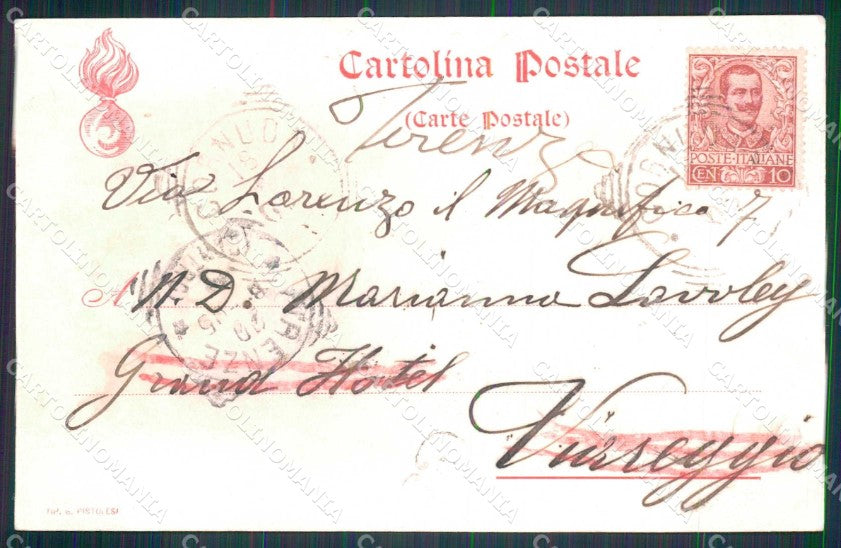 Cartolina Postale
(Carte Postale)
Firenze
Via Lorenzo il Magnifico 7
POSTE·ITALIANE
CEN 10
A N. D. Marianna
Grand Hôtel
Viareggio
FIRENZE
TIP. G. PISTOLESI
CARTOLINOMANIA